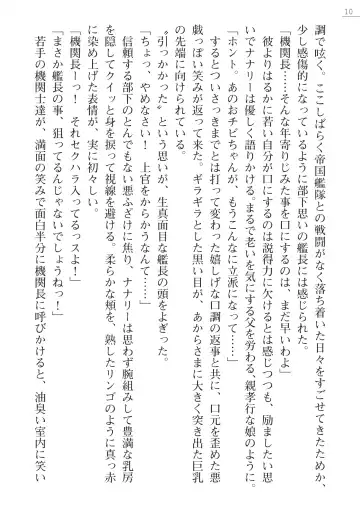 10
調で呟く。ここしばらく帝国艦隊との戦闘がなく落ち着いた日々をすごせてきたためか、
少し感傷的になっているように部下思いの艦長には感じられた。
「機関長……そんな年寄りじみた事を口にするのは、まだ早いわよ」
彼よりはるかに若い自分が口にするのは説得力に欠けると感じつつも、励ましたい思
いでナナリーは優しく語りかける。まるで老いを気にする父を労わる、親孝行な娘のように。
「ホント。あのおチビちゃんが、もうこんなに立派になって……」
するとついさっきまでとは打って変わった嬉しげな口調の返事と共に、口元を歪めた悪
戯っぽい笑みが返って来た。ギラギラとした黒い目が、あからさまに大きく突き出た巨乳
の先端に向けられている。
〝引っかかった〟という思いが、生真面目な艦長の頭をよぎった。
「ちょっ、やめなさい！　上官をからかうなんて……」
信頼する部下のとんでもない悪ふざけに焦り、ナナリーは思わず腕組みして豊満な乳房
を隠してクイッと身を捩って視線を避ける。柔らかな頬を、熟したリンゴのように真っ赤
に染め上げた表情が、実に初々しい。
「機関長ーっ！　それセクハラ入ってるっスよ！」
「まさか艦長の事、狙ってるんじゃないでしょうねっ！」
若手の機関士達が、満面の笑みで面白半分に機関長に呼びかけると、油臭い室内に笑い